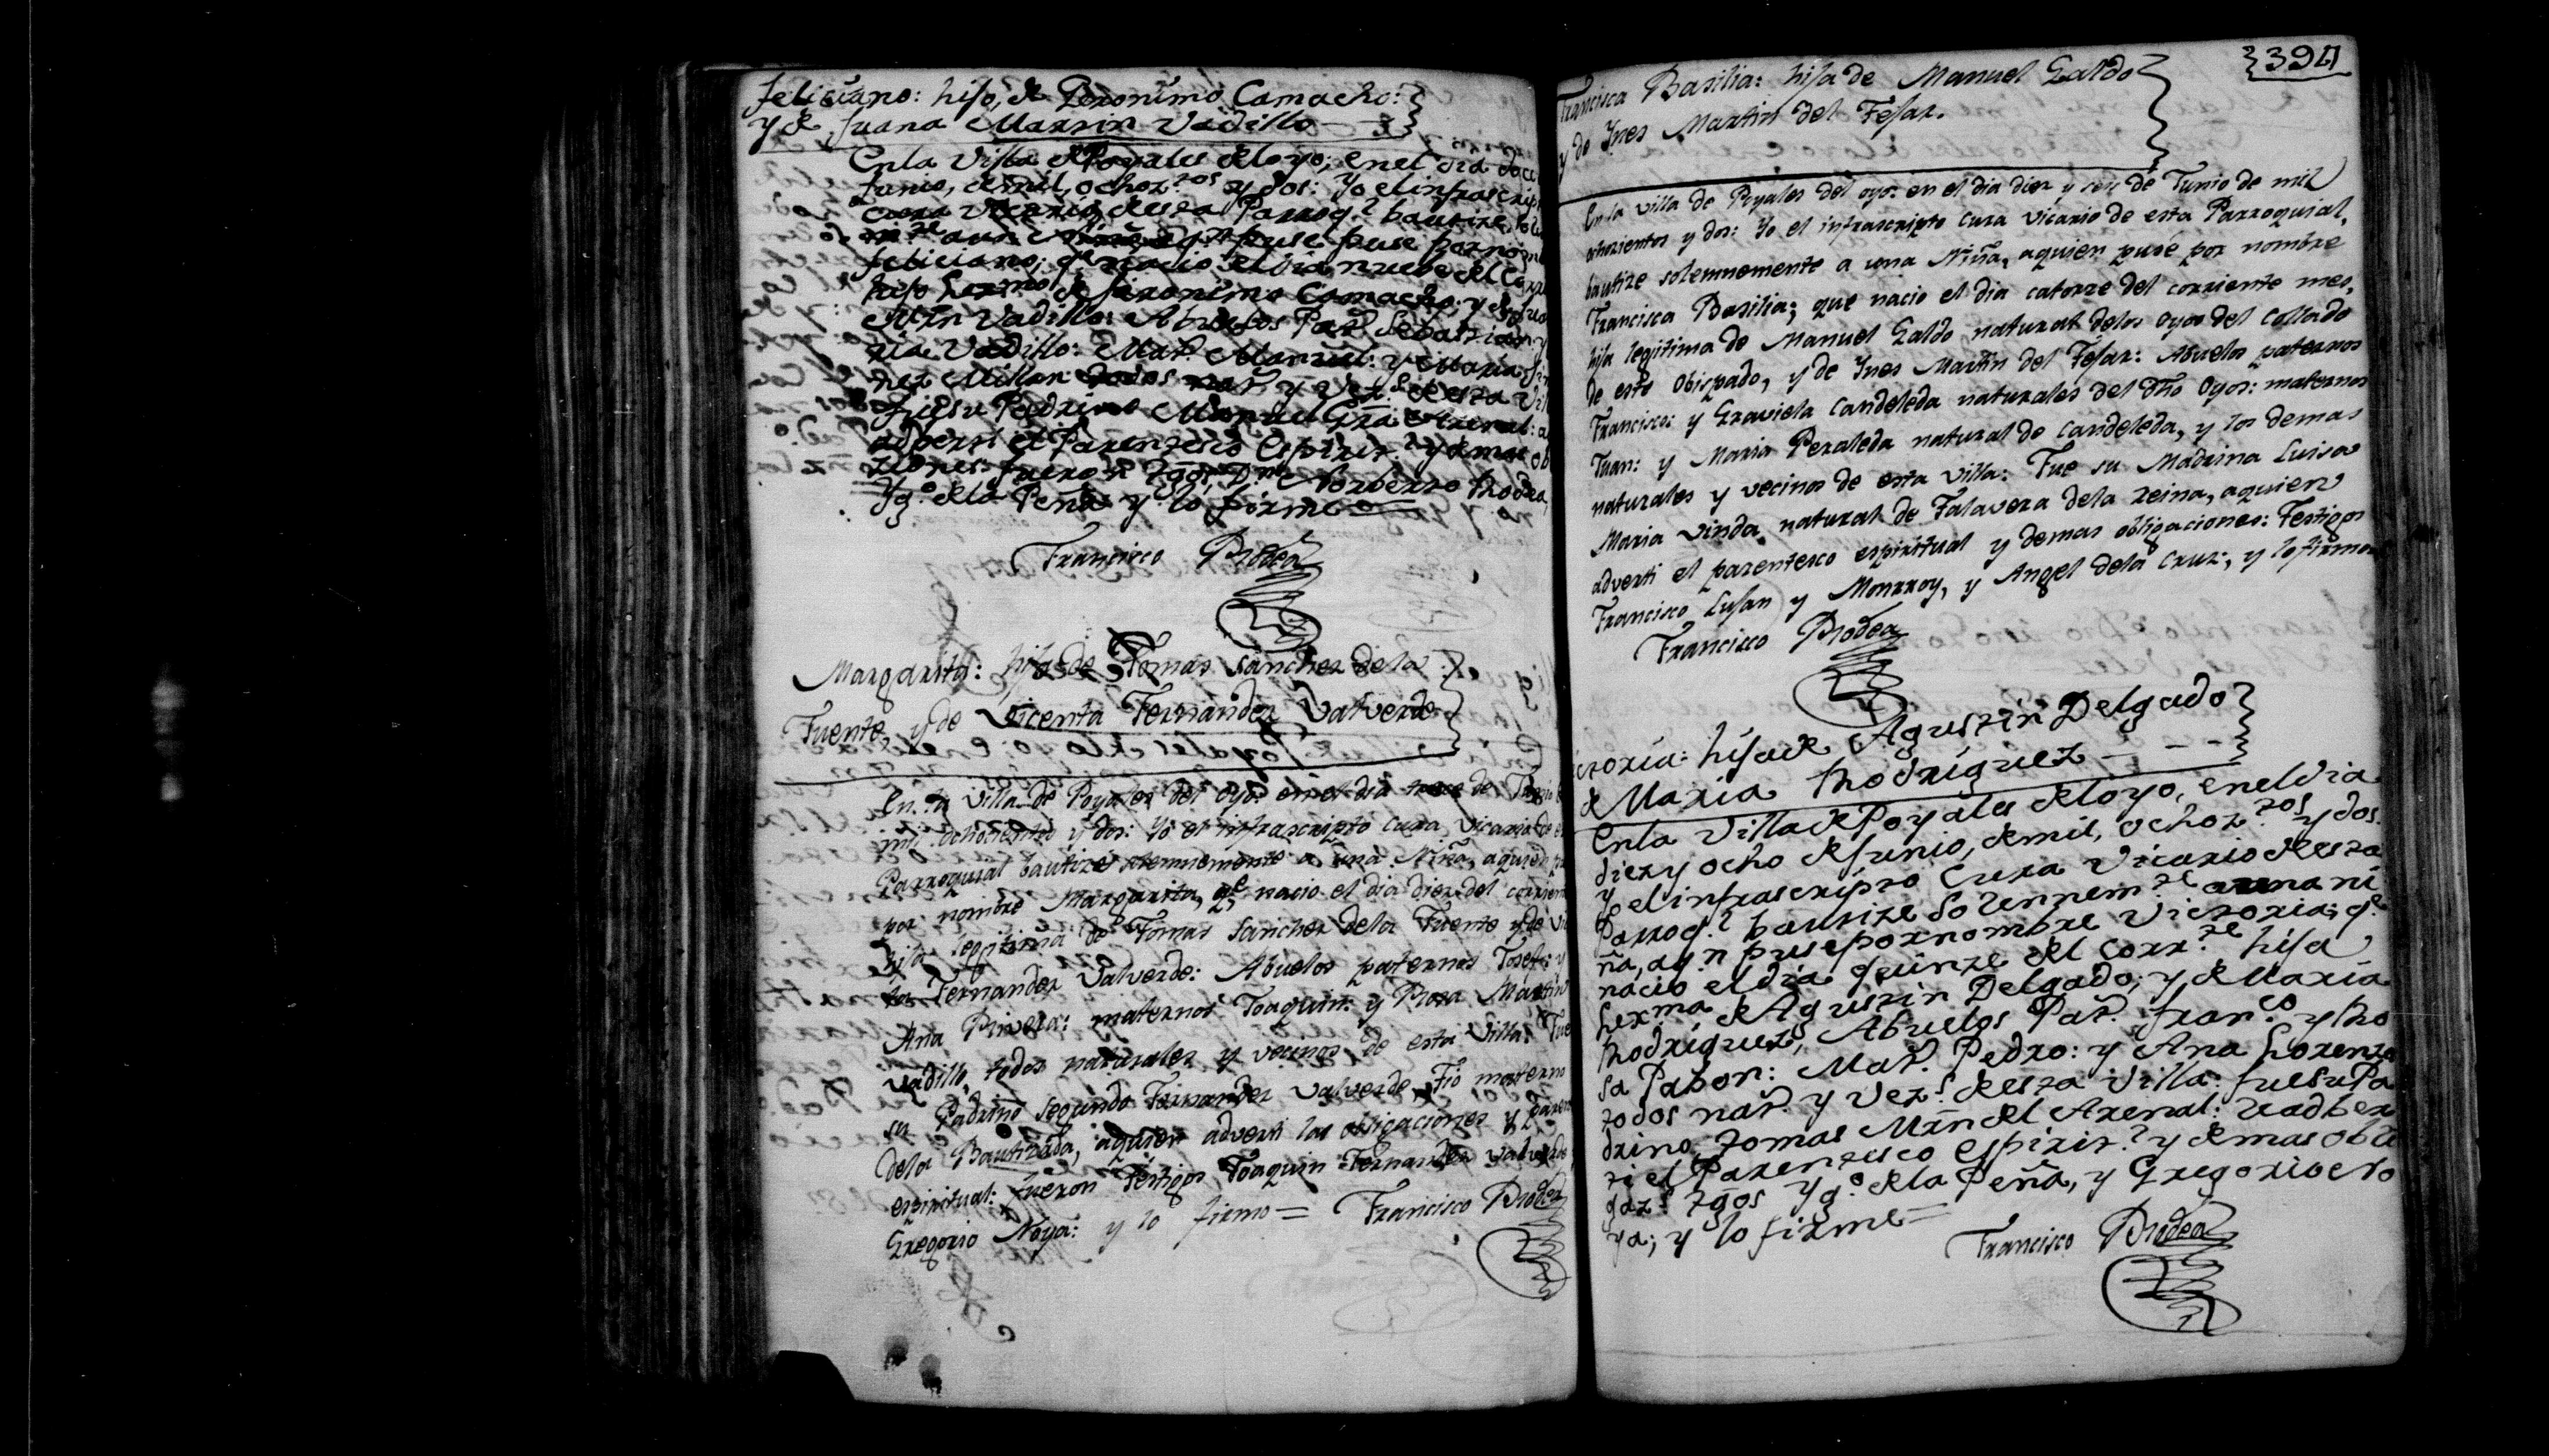 Feliciano: hijo, de Geronimo Camacho:
y de Juana Martin Vadillo
En la Villa de Poyales del oyo; en el dia doce
Junio, de mil, ochoz.tos y dos: Yo el infrascrip
cura Vicario de esta Parroq.l bautize, sole
m.te a un Niño a q.n puse puse por nom
feliciano; q.e nacio el dia nueve del Corr
hijo lexmo de Jeronimo Camacho; y de Jua
Mrn Vadillo: Abuelos Pat.s Sebastian y
ria Vadillo: Mat.s Manuel: y Maria
nez Millan todos nat.s y vez.s de esta Vil
fue su Padrino Manuel Gra
adverti el Parentesco Espirit.l y demas ob
ziones: fueron tgos, D.n Norberto Rodea,
Yg.o de la Peña y lo firme
Francisco Rodea
Margarita: hija de Tomas Sanchez de la
Fuente, y de Vicenta Fernandez Valverde
En la villa de Poyales del oyo: en el dia trece de Junio
mil ochocientos y dos: Yo el infrascripto cura vicario de e
Parroquial bautizé solemnemente a una Niña, aquien pu
por nombre Margarita, q.e nacio el dia diez del corrien
hija legitima de Tomas Sanchez dela Fuente y de Vi
ta Fernandez Valverde: Abuelos paternos Josef: y
Ana Rivera: maternos Joaquin: y Rosa Martin
Vadillo, todos naturales y vecinos de esta Villa: Fue
su Padrino Segundo Fernandez Valverde, Tio materno
dela Bautizada, aquien adverti las obligaciones y paren
espiritual: fueron testigos Joaquin Fernandez Valverde
Gregorio Noya: y lo firmo = Francisco Rodea
394
Francisca Basilia: hija de Manuel Galdo
y de Ynes Martin del Tejar.
En la villa de Poyales del oyo: en el dia diez y seis de Junio de mil
ochocientos y dos: Yo el infrascripto cura vicario de esta Parroquial,
bautize solemnemente a una Niña, aquien pusé por nombre
Francisca Basilia; que nacio el dia catorze del corriente mes,
hija legitima de Manuel Galdo natural delos oyos del collado
de este Obispado, y de Ynes Martin del Tejar: Abuelos paternos
Francisco: y Graviela Candeleda naturales del dho Oyos: maternos
Juan: y Maria Peraleda natural de candeleda, y los demas
naturales y vecinos de esta villa: Fue su Madrina Luisa
Maria viuda natural de Talavera dela reina, aquien
adverti el parentesco espiritual y demas obligaciones: Testigos
Francisco Lujan y Monrroy, y Angel dela Cruz: y lo firmo
Francisco Rodea
ctoria: hija de Agustin Delgado
de Maria Rhodriguez
En la Villa de Poyales del oyo, en el dia
diez y ocho de Junio, de mil, ochoz.tos y dos.
Yo el infrascripto Cura Vicario de esta
Parroq.l bautize Solennem.te a una ni
ña, a q.n puse por nombre Victoria; q.e
nacio el dia quinze del corr.te hija
lexma de Agustin Delgado; y de Maria
Rhodriguez, Abuelos Pat.s fran.co y Rho
sa Pabon: Mat.s Pedro: y Ana Lorenza
todos nat.s y vez.s de esta Villa: fue su Pa
drino, Tomas Mrn del Arenal: le adber
ti el Parentesco espirit.l y demas obli
gaz.s tgos Yg.o de la Peña, y Gregorio No
ya; y lo firme =
Francisco Rodea